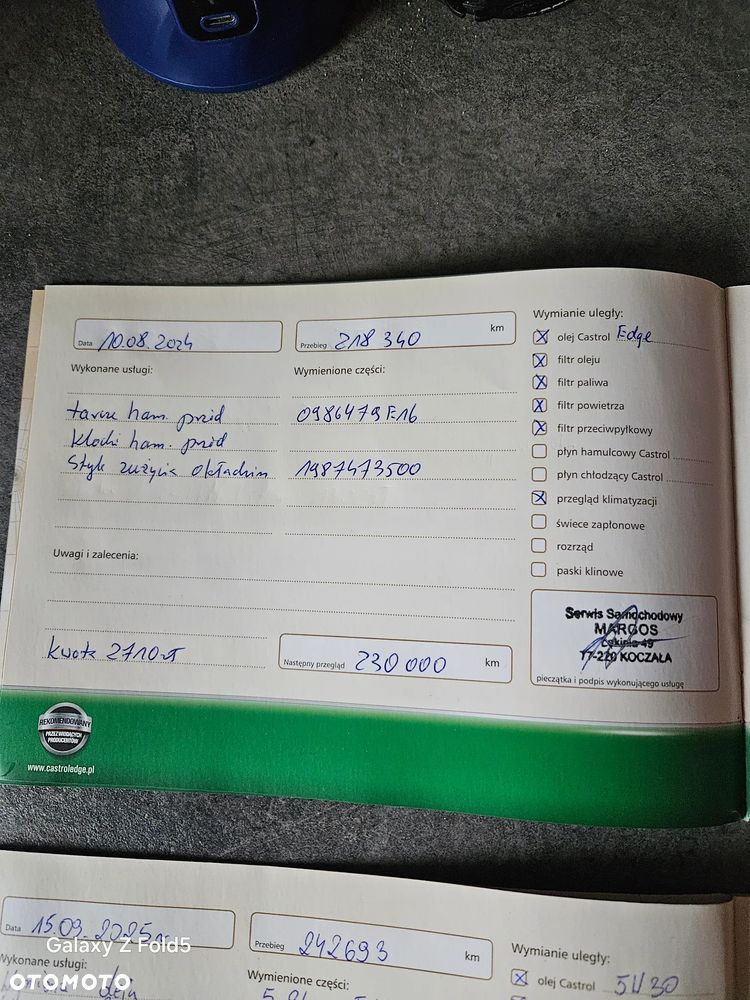 Data 10.08.2024
Przebieg 218 340 km
Wykonane usługi:
Wymienione części:
tarcze ham. przód
0986479F16
klocki ham. przód
Styk zużycia okładzin
1987473500
Uwagi i zalecenia:
kwota 2710 zł
Następny przegląd 230 000 km
Wymianie uległy:
olej Castrol Edge
filtr oleju
filtr paliwa
filtr powietrza
filtr przeciwpyłkowy
płyn hamulcowy Castrol
płyn chłodzący Castrol
przegląd klimatyzacji
świece zapłonowe
rozrząd
paski klinowe
Serwis Samochodowy
MARGOS
49
77-220 KOCZAŁA
pieczątka i podpis wykonującego usługę
REKOMENDOWANY
PRZEZ WIODĄCYCH
PRODUCENTÓW
www.castroledge.pl
Data 15.09.2025r.
Przebieg 242693 km
Wykonane usługi:
Wymienione części:
Wymianie uległy:
olej Castrol 5W30
Galaxy Z Fold5
OTOMOTO